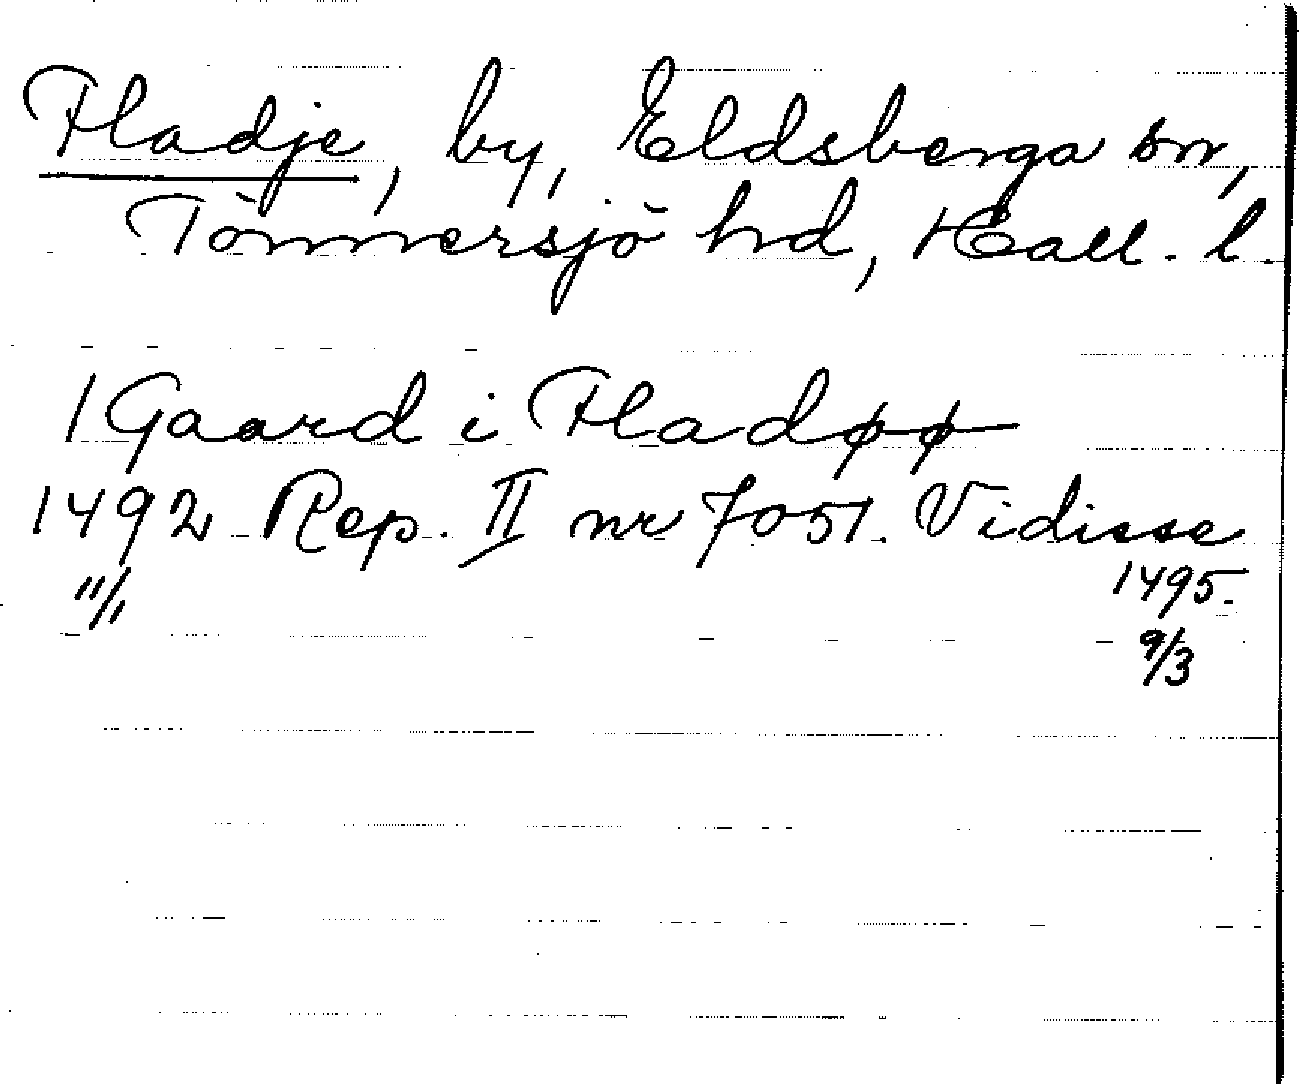 Fladje, by, Eldsberga sn,
Tönnersjö hd, Hall. l.
1 Gaard i Fladøø
1492 Rep. II nr 7051. Vidisse
11/1 1495.
9/3